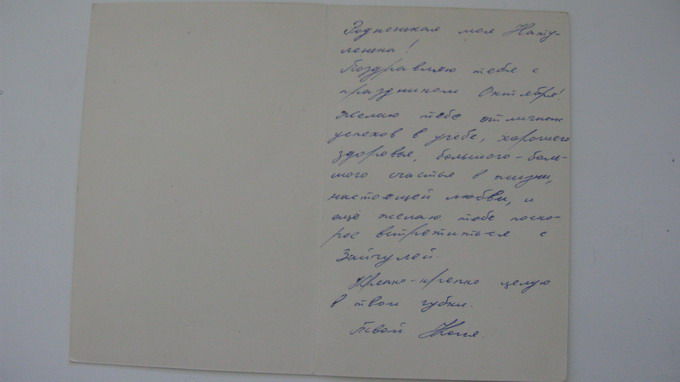 Родненькая моя Нату-
лечка!
Поздравляю тебя с
праздником Октября!
Желаю тебе отличных
успехов в учебе, хорошего
здоровья, большого-боль-
шого счастья в жизни,
настоящей любви, и
ещё желаю тебе поско-
рее встретиться с
Зайчулей.
Крепко-крепко целую
в твои губки.
Твой